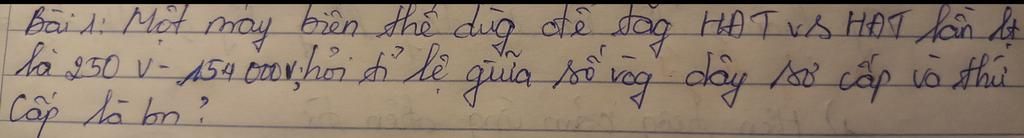 Bài 1: Một máy biến thế dùg để tăg HĐT vs HĐT lần lt
là 250 V - 154 000V; hỏi tỉ lệ giữa số vòg dây sơ cấp và thứ
Cấp là bn?